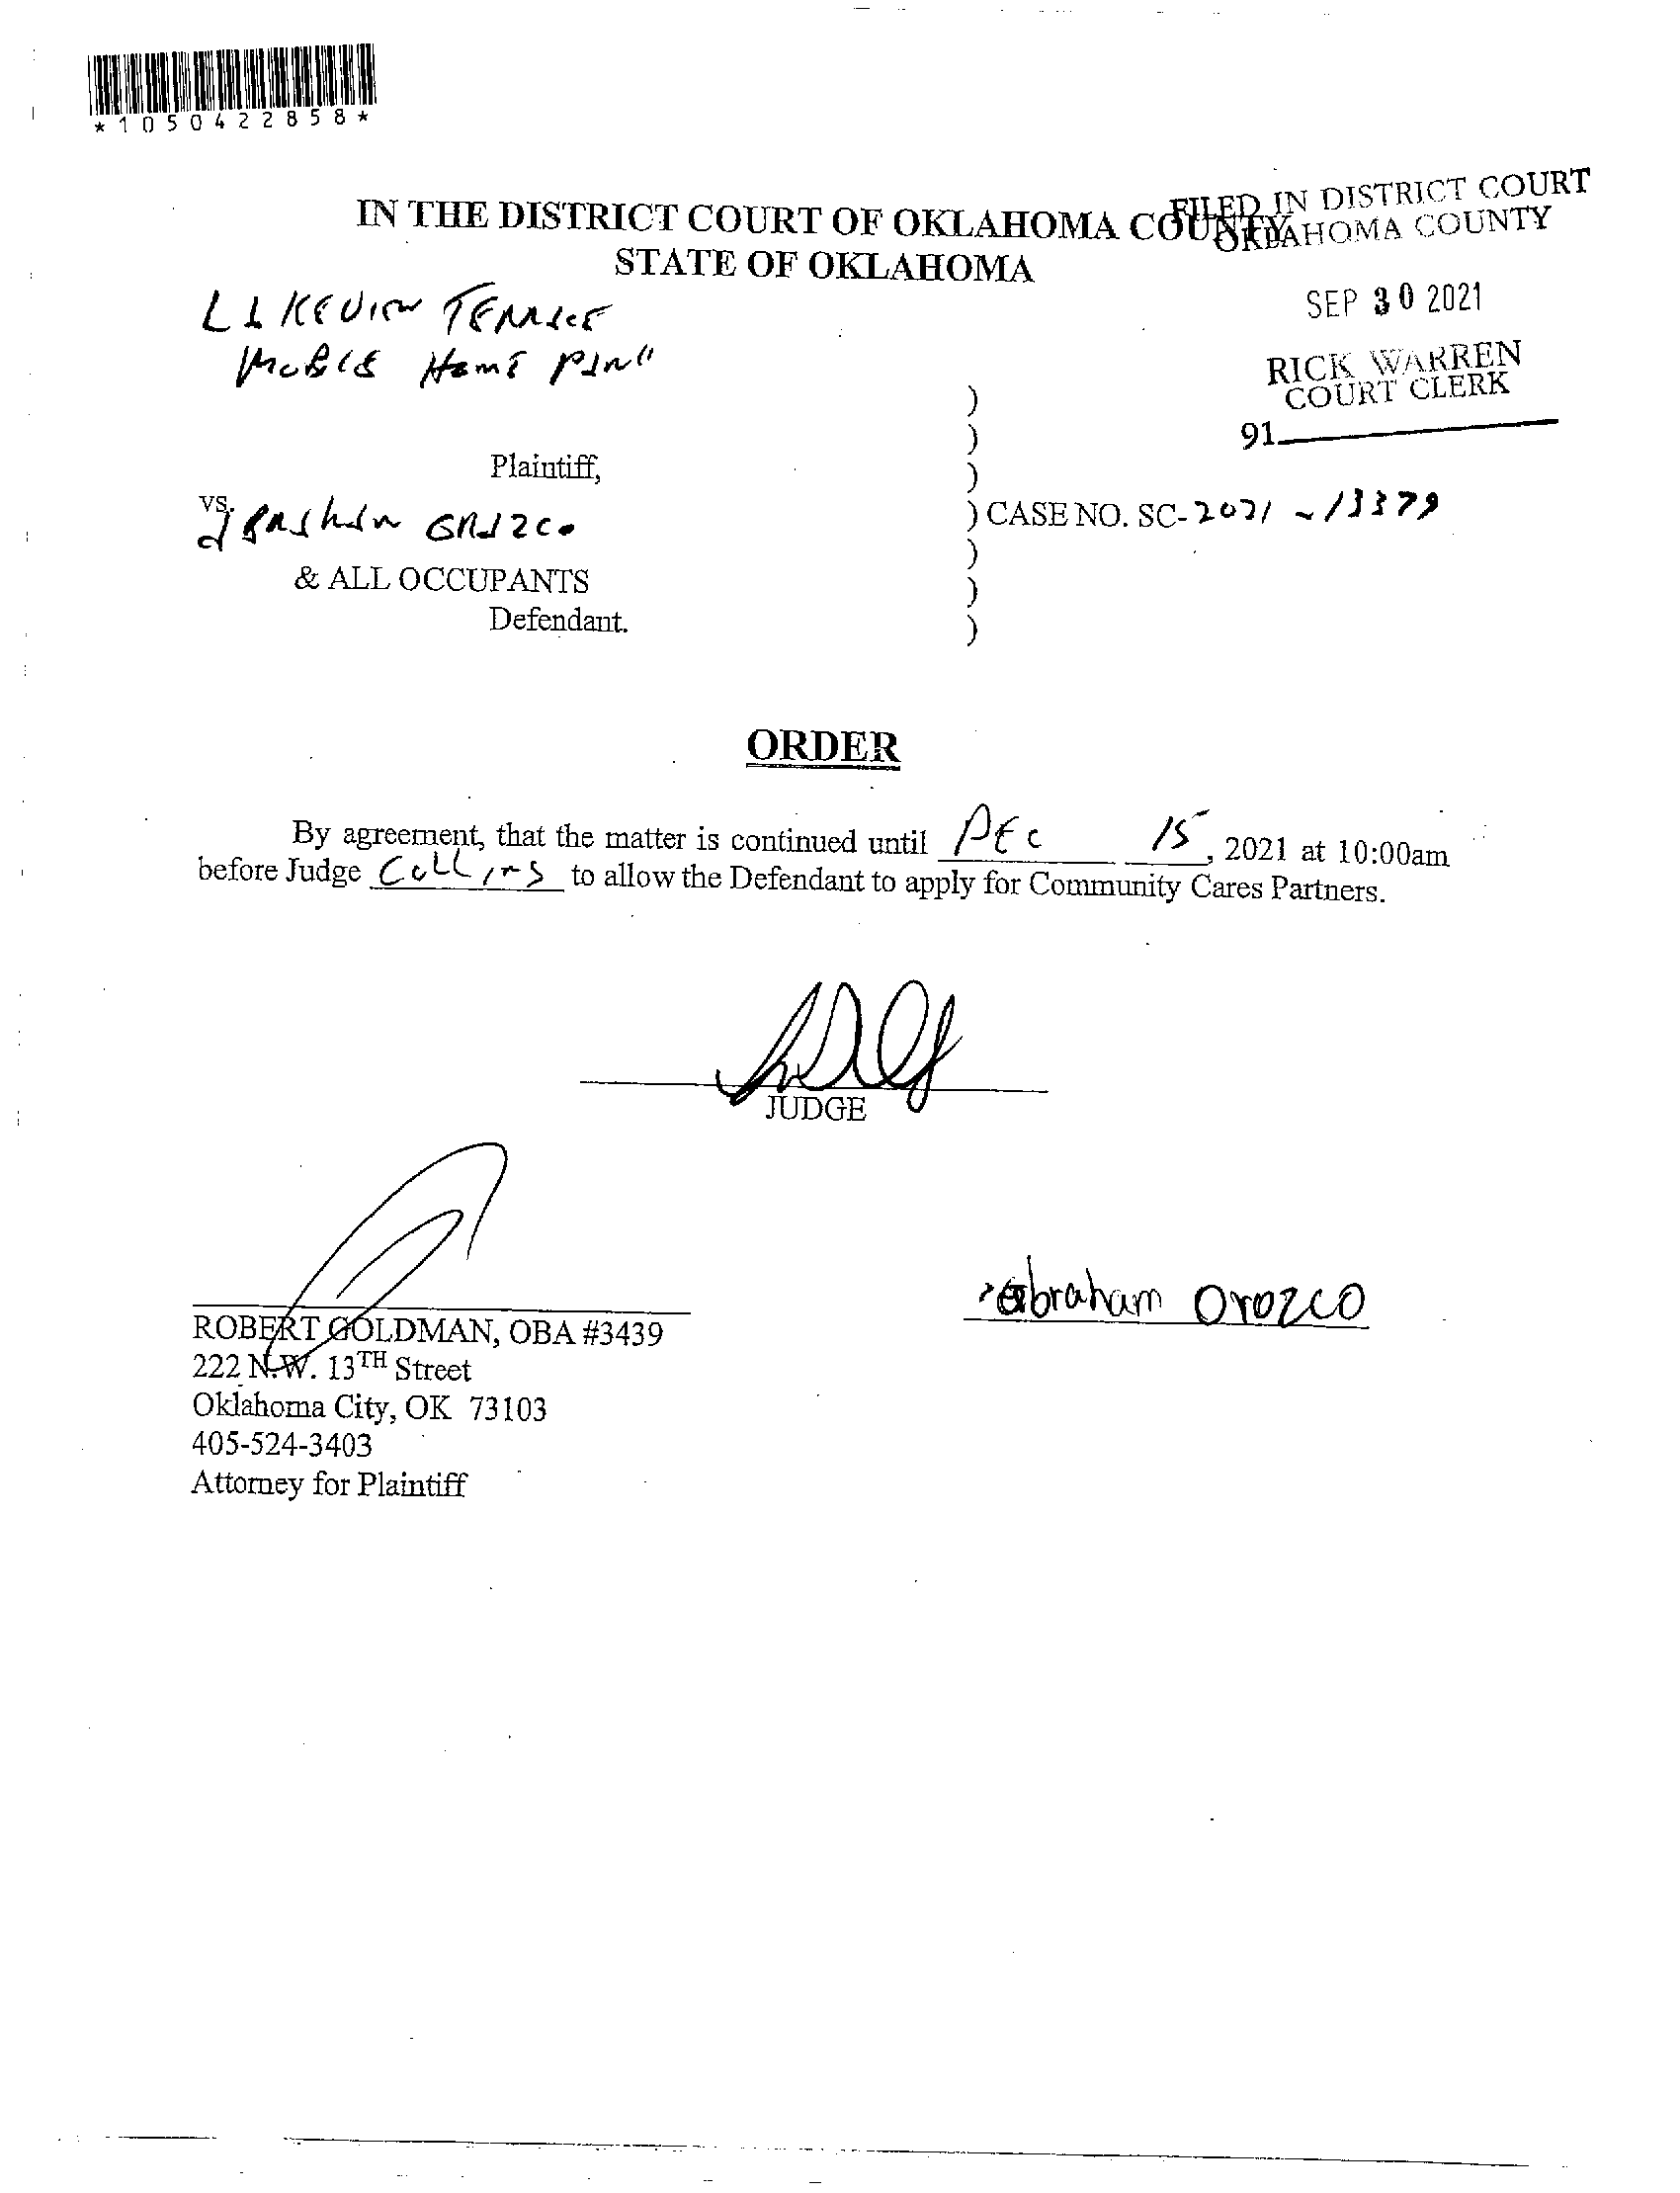 *1050422858*
IN THE DISTRICT COURT OF OKLAHOMA COUNTY
STATE OF OKLAHOMA
FILED IN DISTRICT COURT
OKLAHOMA COUNTY
SEP 30 2021
RICK WARREN
COURT CLERK
91
LAKEVIEW TERRACE
MOBILE HOME PARK
)
)
Plaintiff,
)
vs.
) CASE NO. SC-2021-13379
)
& ALL OCCUPANTS
)
Defendant.
)
ORDER
By agreement, that the matter is continued until DEC 15, 2021 at 10:00am
before Judge COLLINS to allow the Defendant to apply for Community Cares Partners.
JUDGE
abraham Orozco
ROBERT GOLDMAN, OBA #3439
222 N.W. 13TH Street
Oklahoma City, OK 73103
405-524-3403
Attorney for Plaintiff